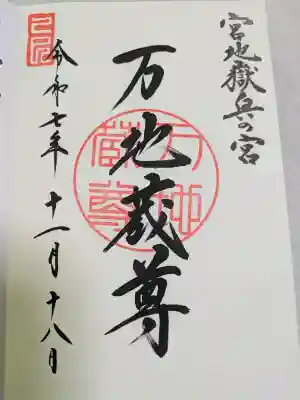 宮地嶽奥の宮
万地蔵尊
万地
蔵尊
令和七年十一月十八日